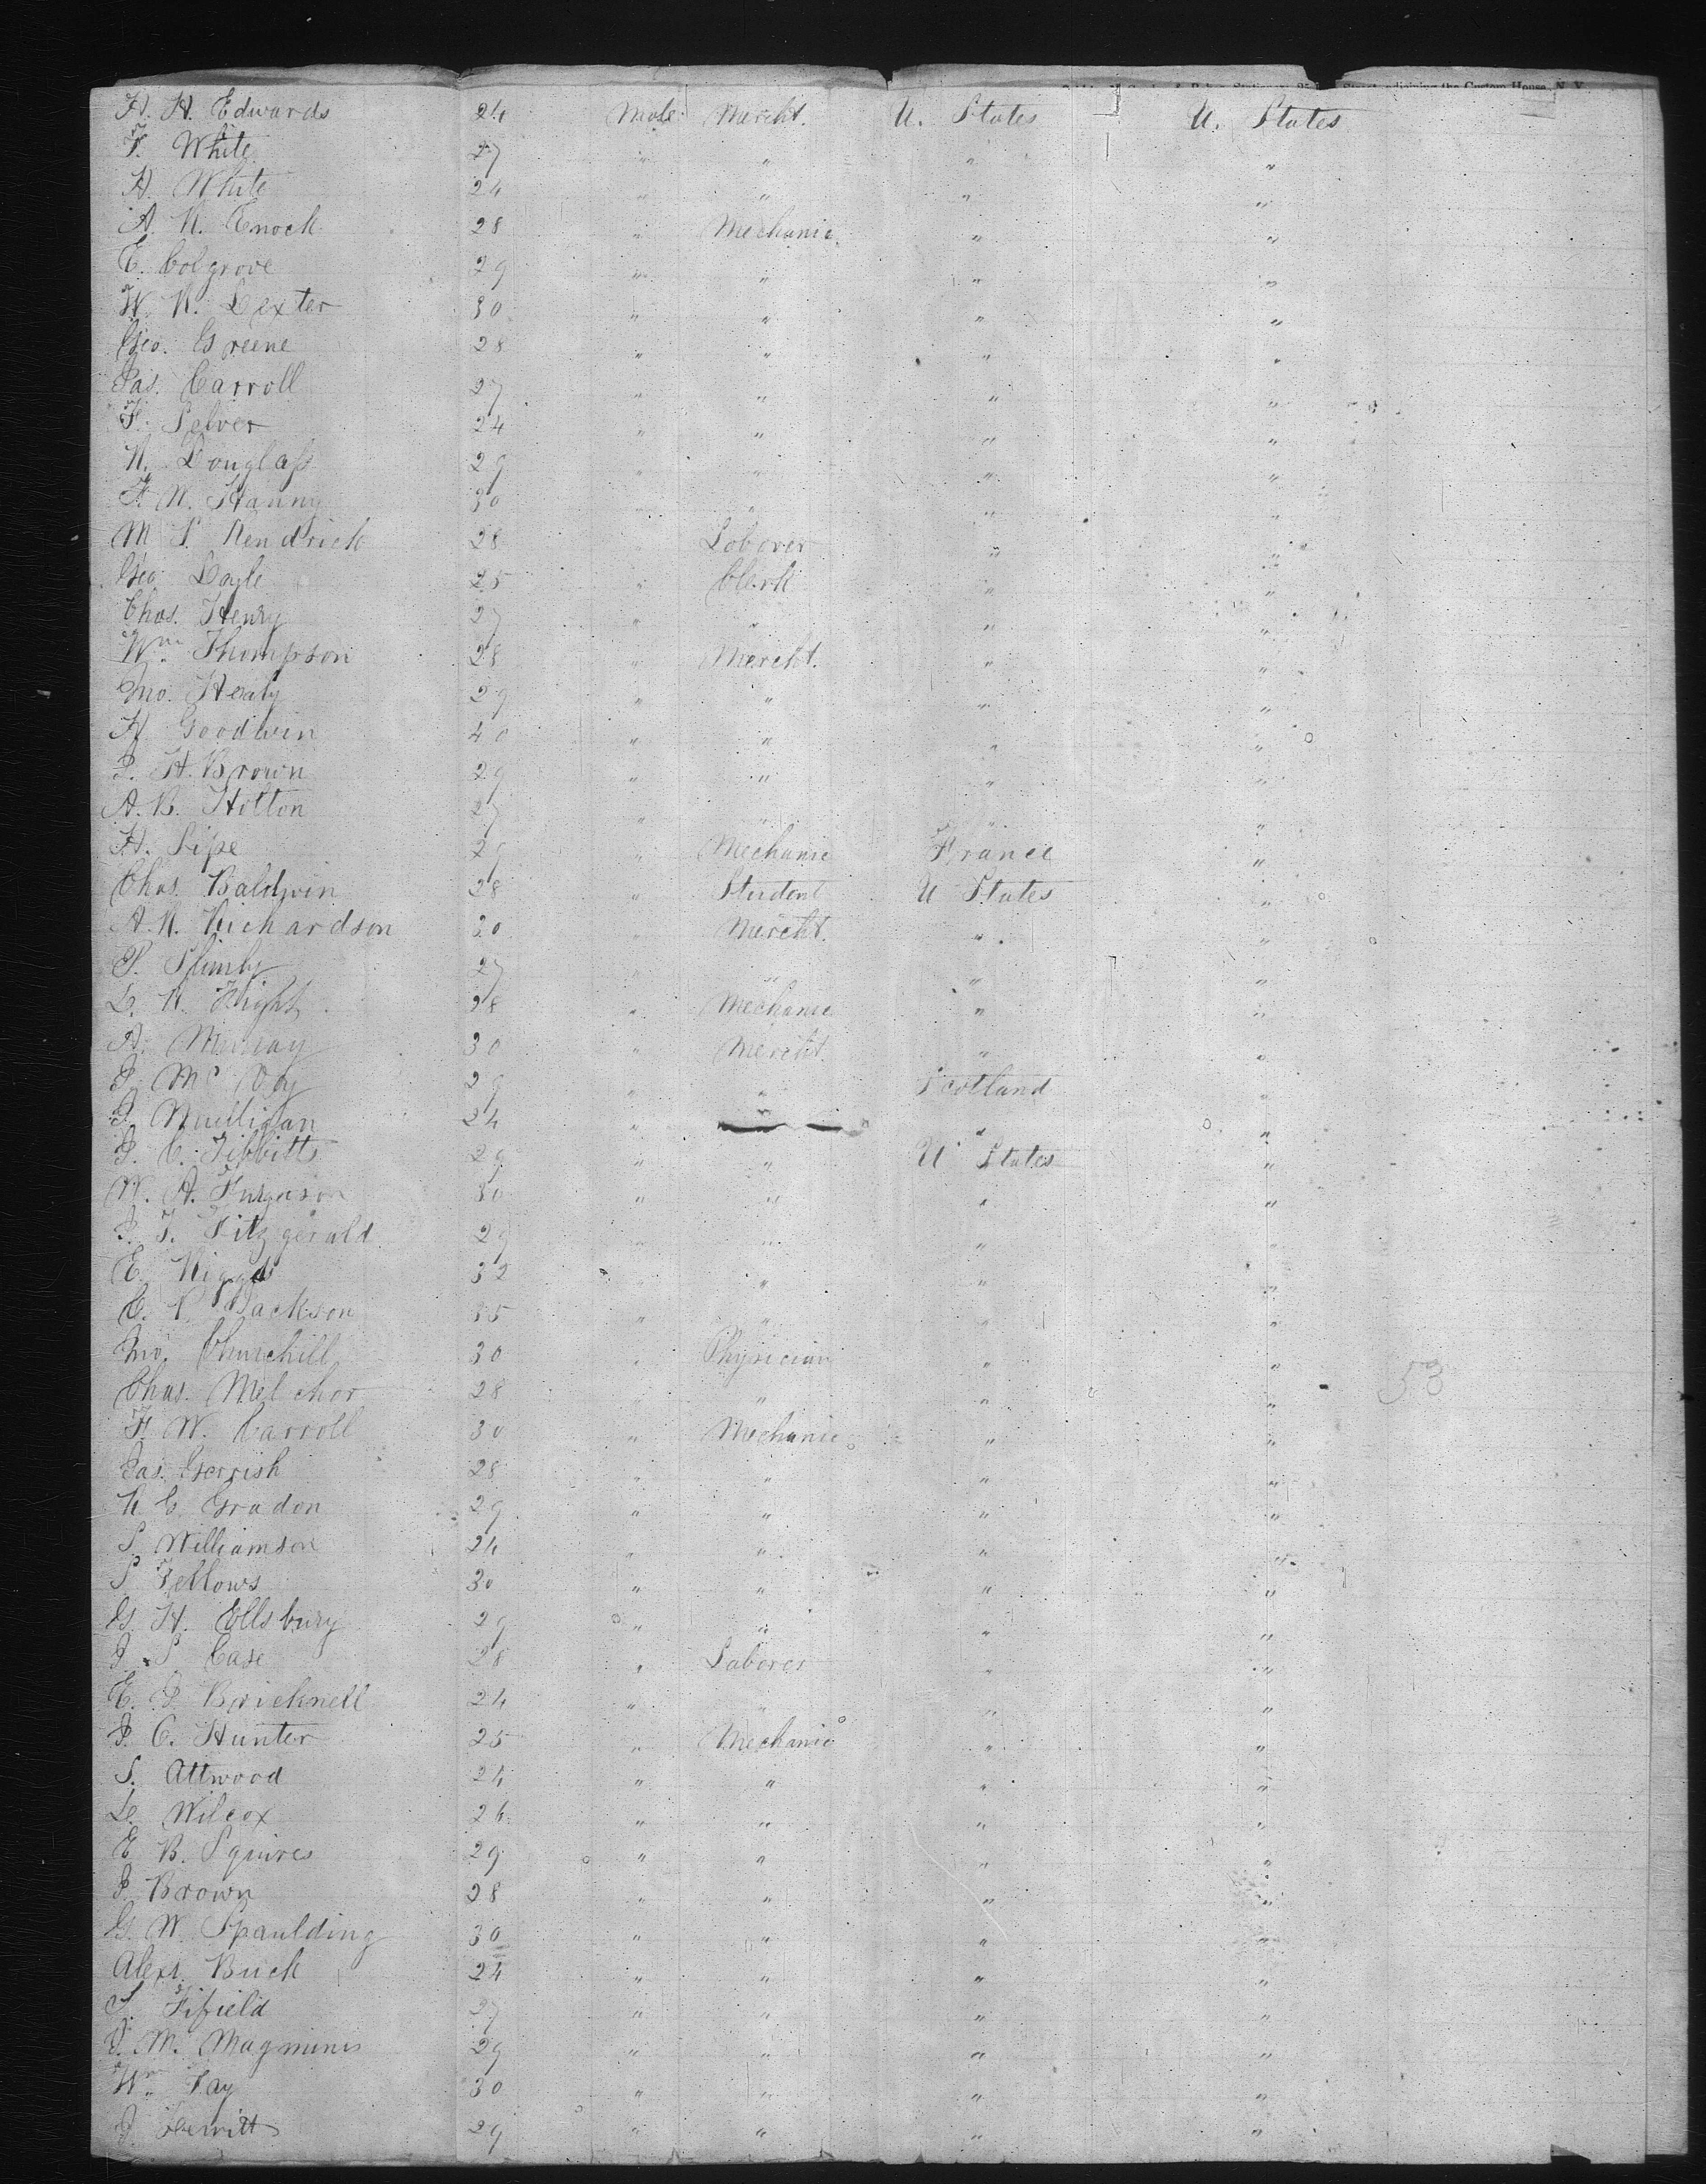 Street, adjoining the Custom House, N. Y.
H. H. Edwards 24 Male Mercht. U. States U. States
F. White 27 " " " "
A. White 24 " " " "
A. N. Enoch 28 " Mechanic " "
E. Colgrove 29 " " " "
W. N. Dexter 30 " " " "
Geo. Greene 28 " " " "
Jas. Carroll 27 " " " "
F. Selver 24 " " " "
N. Douglass 29 " " " "
F. W. Hanny 30 " " " "
M S Kendrick 28 " Laborer " "
Geo. Doyle 25 " Clerk " "
Chas. Henry 27 " " " "
Wm. Thompson 28 " Mercht. " "
Jno. Healy 29 " " " "
H. Goodwin 40 " " " "
J. H. Brown 29 " " " "
A. B. Holton 27 " " " "
H. Sipe 29 " Mechanic France "
Chas. Baldwin 28 " Student U States "
A. N. Richardson 20 " Mercht. " "
P. 27 " " " "
D. 28 " Mechanic " "
A. Murray 30 " Mercht. " "
J. Mc 29 " " Scotland "
J. Mulligan 24 " " " "
J. C. Tibbitts 29 " " U States "
W. A. Furgusson 30 " " " "
J. T. Fitzgerald 29 " " " "
E. Riggs 32 " " " "
E. Jackson 35 " " " "
Jno. Churchill 30 " Physician " "
Chas. Melchor 28 " " " "
F. W. Carroll 30 " Mechanic " "
Jas. Gerrish 28 " " " "
N. C. Gradon 29 " " " "
S. Williamson 24 " " " "
S Fellows 30 " " " "
G. H. Ellsbury 29 " " " "
J. S Case 28 " Laborer " "
E. J. Bricknell 24 " " " "
J. C. Hunter 25 " Mechanic " "
S. Attwood 24 " " " "
D. Wilcox 26 " " " "
E B. Squires 29 " " " "
J. Brown 28 " " " "
G. W. Spaulding 30 " " " "
Alexr. Buck 24 " " " "
S. Fifield 27 " " " "
J. M. Magminis 29 " " " "
Wm. Fay 30 " " " "
J. Hewitt 29 " " " "
53